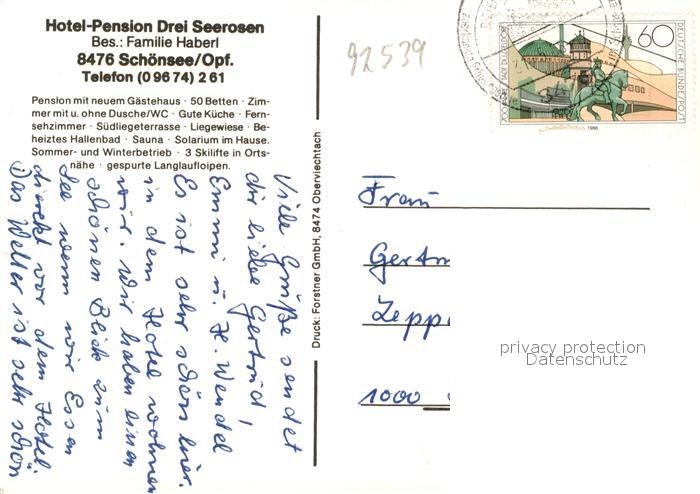 Hotel-Pension Drei Seerosen
Bes.: Familie Haberl
8476 Schönsee/Opf.
Telefon (0 96 74) 2 61
Pension mit neuem Gästehaus · 50 Betten · Zim-
mer mit u. ohne Dusche/WC · Gute Küche · Fern-
sehzimmer · Südliegeterrasse · Liegewiese · Be-
heiztes Hallenbad · Sauna · Solarium im Hause.
Sommer- und Winterbetrieb · 3 Skilifte in Orts-
nähe · gespurte Langlaufloipen.
Viele Grüße sendet
dir liebe Gertrud,
Emmi u. H. Wendel
Es ist sehr schön hier.
in dem Hotel wohnen
wir. Wir haben einen
schönen Blick zum
See wenn wir Essen
direkt vor dem Hotel.
Das Wetter ist sehr schön
Druck: Forstner GmbH, 8474 Oberviechtach
92539
60
DEUTSCHE BUNDESPOST
1988
Frau
Gertr
Zepp
1000
privacy protection
Datenschutz